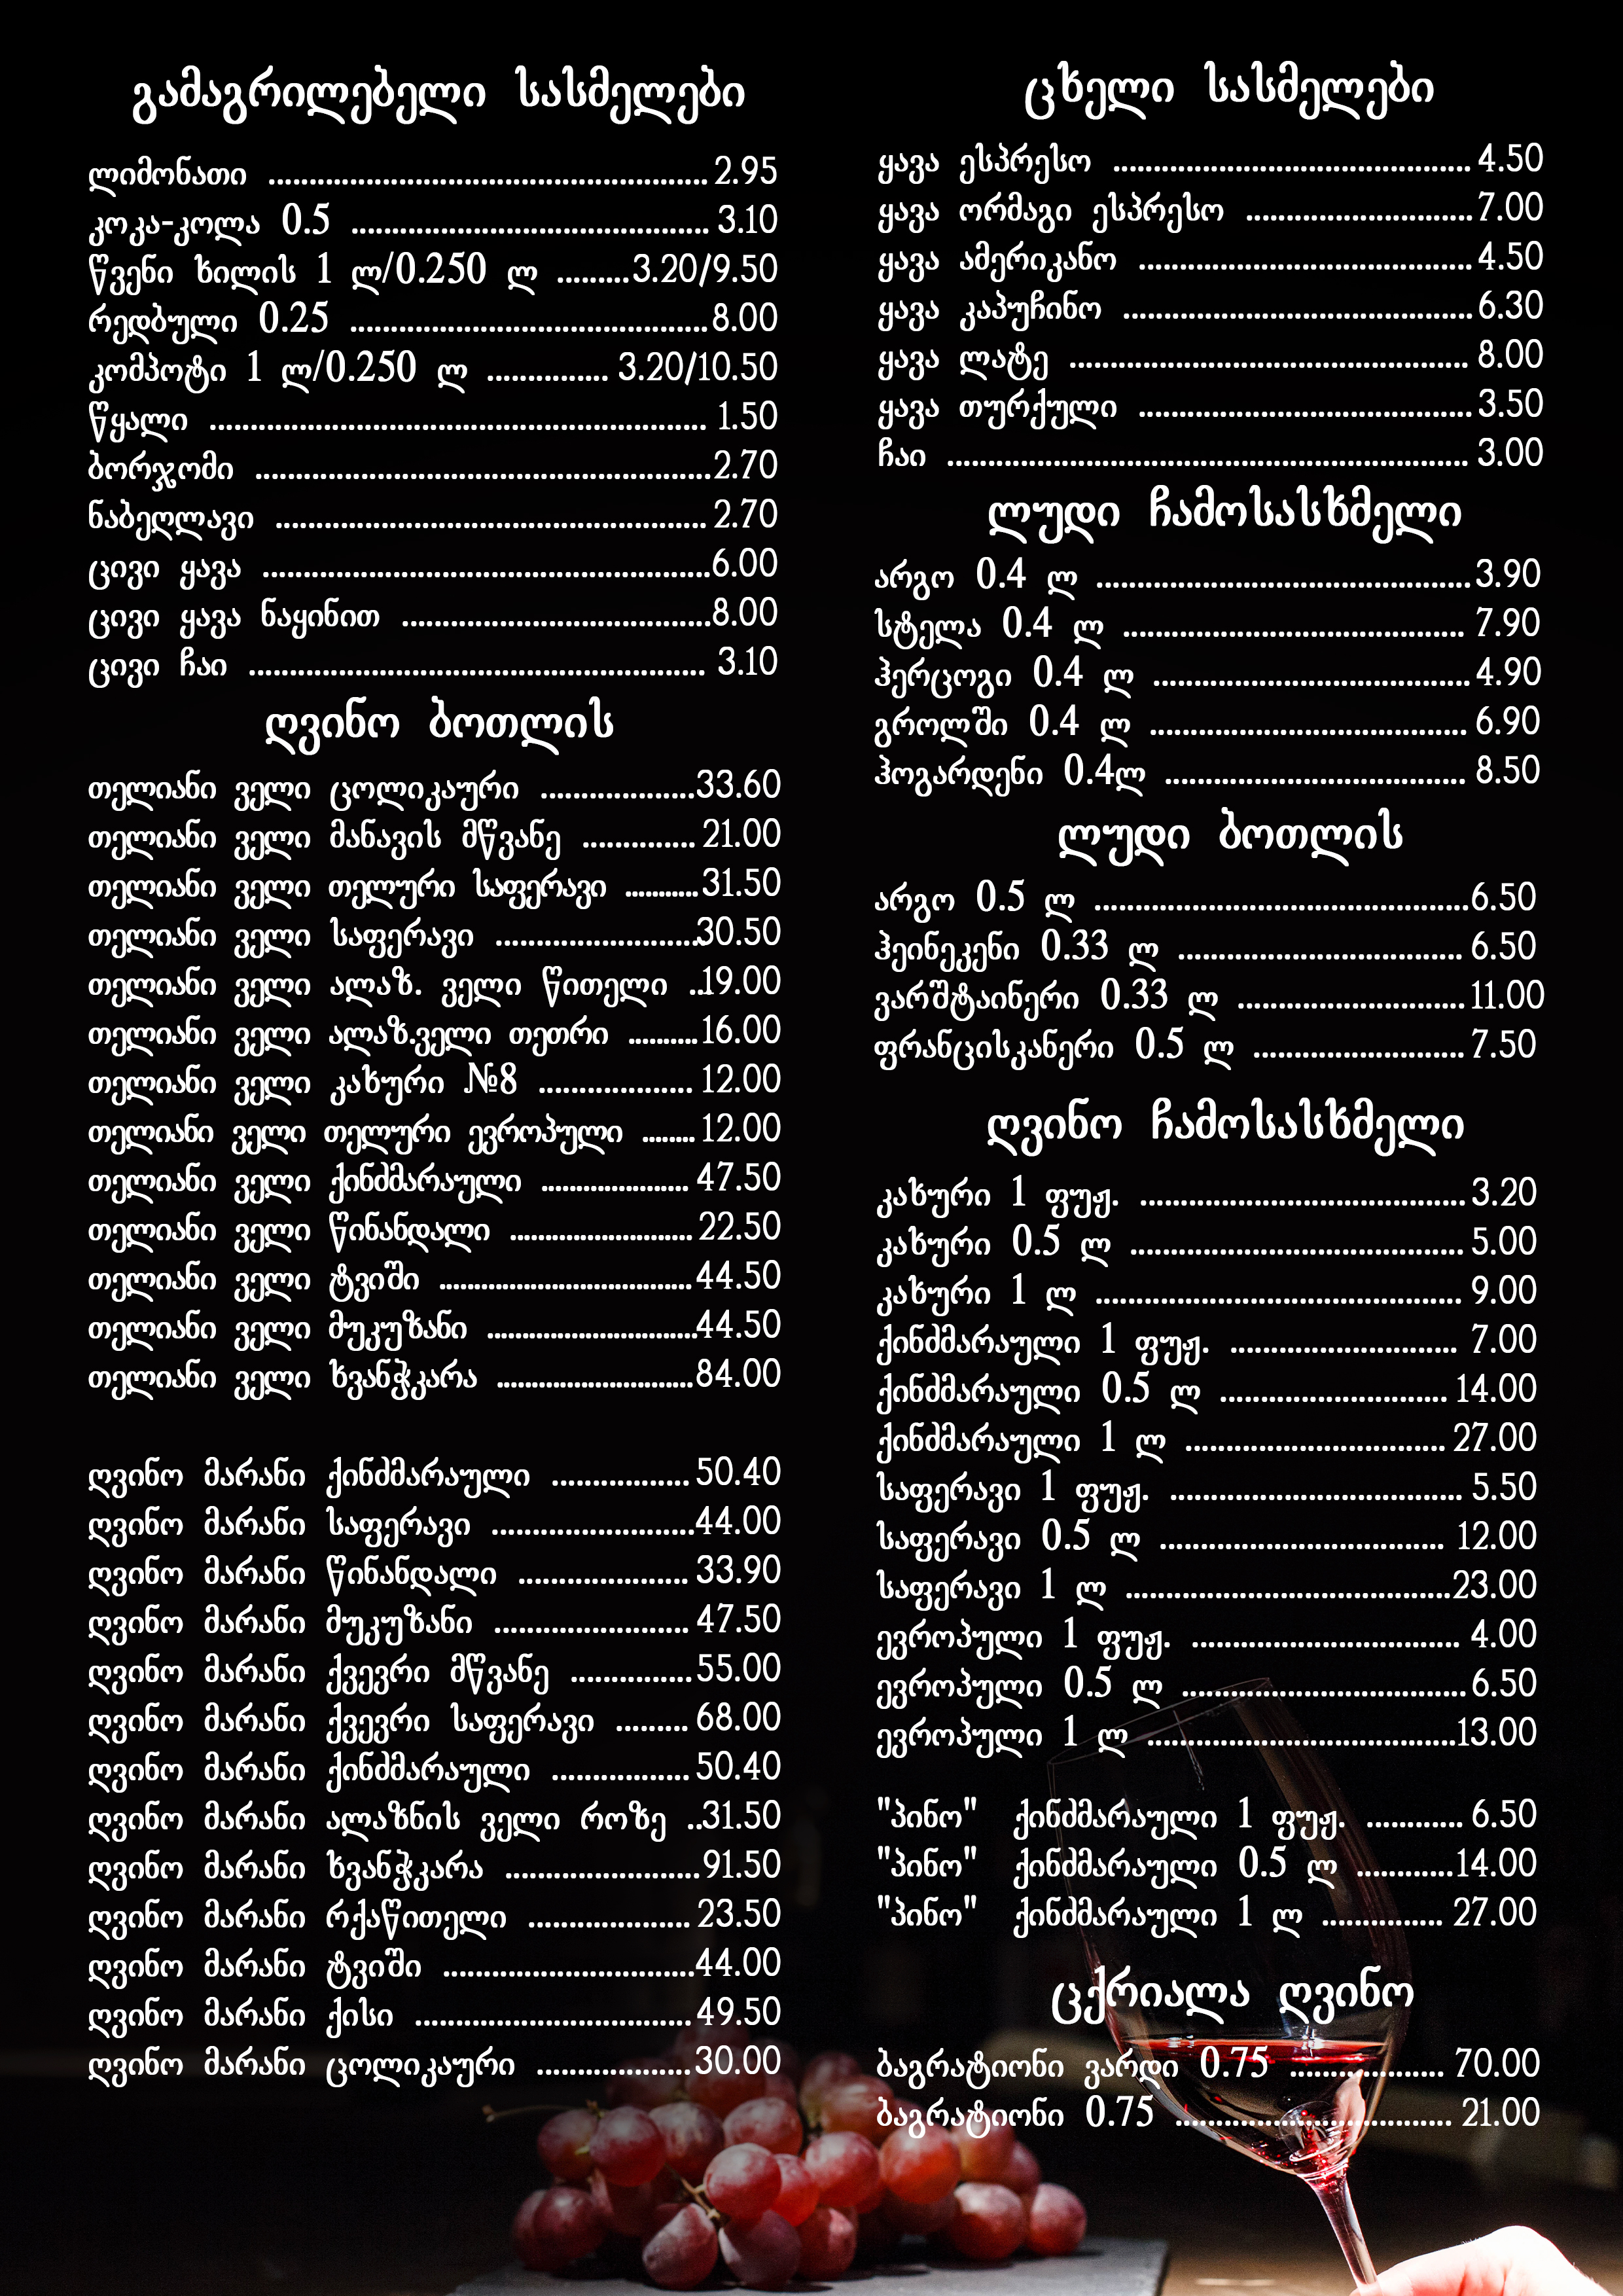 გამაგრილებელი სასმელები
ლიმონათი ........ 2.95
კოკა-კოლა 0.5 ........ 3.10
წვენი ხილის 1 ლ/0.250 ლ ........ 3.20/9.50
რედბული 0.25 ........ 8.00
კომპოტი 1 ლ/0.250 ლ ........ 3.20/10.50
წყალი ........ 1.50
ბორჯომი ........ 2.70
ნაბეღლავი ........ 2.70
ცივი ყავა ........ 6.00
ცივი ყავა ნაყინით ........ 8.00
ცივი ჩაი ........ 3.10
ღვინო ბოთლის
თელიანი ველი ცოლიკაური ........ 33.60
თელიანი ველი მანავის მწვანე ........ 21.00
თელიანი ველი თელური საფერავი ........ 31.50
თელიანი ველი საფერავი ........ 30.50
თელიანი ველი ალაზ. ველი წითელი ..19.00
თელიანი ველი ალაზ.ველი თეთრი ........ 16.00
თელიანი ველი კახური №8 ........ 12.00
თელიანი ველი თელური ევროპული ........ 12.00
თელიანი ველი ქინძმარაული ........ 47.50
თელიანი ველი წინანდალი ........ 22.50
თელიანი ველი ტვიში ........ 44.50
თელიანი ველი მუკუზანი ........ 44.50
თელიანი ველი ხვანჭკარა ........ 84.00
ღვინო მარანი ქინძმარაული ........ 50.40
ღვინო მარანი საფერავი ........ 44.00
ღვინო მარანი წინანდალი ........ 33.90
ღვინო მარანი მუკუზანი ........ 47.50
ღვინო მარანი ქვევრი მწვანე ........ 55.00
ღვინო მარანი ქვევრი საფერავი ........ 68.00
ღვინო მარანი ქინძმარაული ........ 50.40
ღვინო მარანი ალაზნის ველი როზე ..31.50
ღვინო მარანი ხვანჭკარა ........ 91.50
ღვინო მარანი რქაწითელი ........ 23.50
ღვინო მარანი ტვიში ........ 44.00
ღვინო მარანი ქისი ........ 49.50
ღვინო მარანი ცოლიკაური ........ 30.00
ცხელი სასმელები
ყავა ესპრესო ........ 4.50
ყავა ორმაგი ესპრესო ........ 7.00
ყავა ამერიკანო ........ 4.50
ყავა კაპუჩინო ........ 6.30
ყავა ლატე ........ 8.00
ყავა თურქული ........ 3.50
ჩაი ........ 3.00
ლუდი ჩამოსასხმელი
არგო 0.4 ლ ........ 3.90
სტელა 0.4 ლ ........ 7.90
ჰერცოგი 0.4 ლ ........ 4.90
გროლში 0.4 ლ ........ 6.90
ჰოგარდენი 0.4ლ ........ 8.50
ლუდი ბოთლის
არგო 0.5 ლ ........ 6.50
ჰეინეკენი 0.33 ლ ........ 6.50
ვარშტაინერი 0.33 ლ ........ 11.00
ფრანცისკანერი 0.5 ლ ........ 7.50
ღვინო ჩამოსასხმელი
კახური 1 ფუჟ. ........ 3.20
კახური 0.5 ლ ........ 5.00
კახური 1 ლ ........ 9.00
ქინძმარაული 1 ფუჟ. ........ 7.00
ქინძმარაული 0.5 ლ ........ 14.00
ქინძმარაული 1 ლ ........ 27.00
საფერავი 1 ფუჟ. ........ 5.50
საფერავი 0.5 ლ ........ 12.00
საფერავი 1 ლ ........ 23.00
ევროპული 1 ფუჟ. ........ 4.00
ევროპული 0.5 ლ ........ 6.50
ევროპული 1 ლ ........ 13.00
"პინო" ქინძმარაული 1 ფუჟ. ........ 6.50
"პინო" ქინძმარაული 0.5 ლ ........ 14.00
"პინო" ქინძმარაული 1 ლ ........ 27.00
ცქრიალა ღვინო
ბაგრატიონი ვარდი 0.75 ........ 70.00
ბაგრატიონი 0.75 ........ 21.00